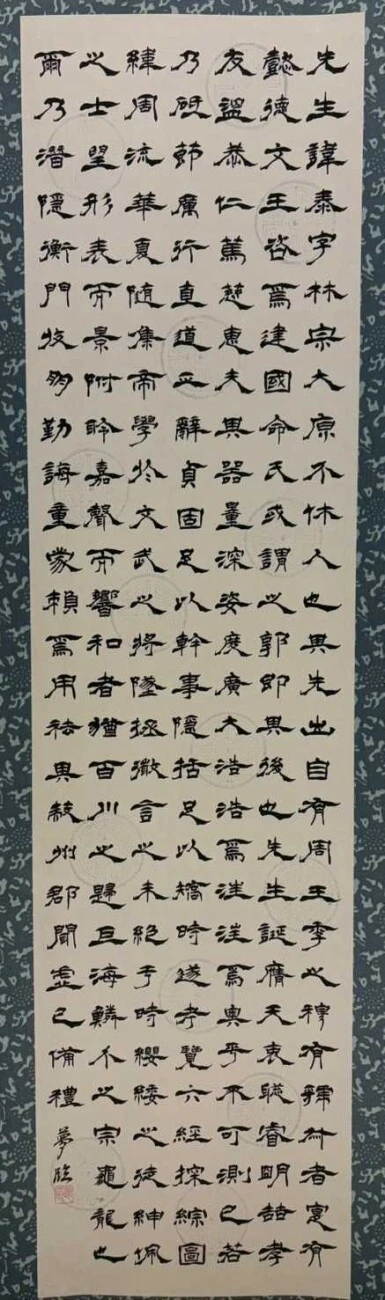 先生諱泰字林宗大原介休人也其先出自有周王季之穆有虢叔者寔有
懿德文王咨焉建國命氏或謂之郭即其後也先生誕膺天衷聰睿明哲孝
友溫恭仁篤慈惠夫其器量深姿度廣大浩浩焉汪汪焉奧乎不可測已若
乃砥節厲行直道正辭貞固足以幹事隱括足以矯時遂考覽六經探綜圖
緯周流華夏隨集帝學於文武之將墜拯微言之未絕于時纓緌之徒紳佩
之士望形表而景附聆嘉聲而響和者猶百川之歸巨海鱗介之宗龜龍也
爾乃潛隱衡門收朋勤誨重蒙賴焉用祛其蔽州郡聞虛己備禮
夢